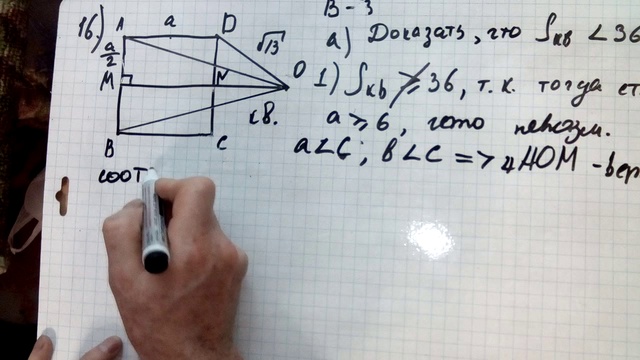 В-3
16) A a D
a/2
√13
M N O
кв.
B C
а) Доказать, что Sкв < 36
1) Sкв ≥ 36, т.к. тогда ст
a ≥ 6, что невозм.
a < 6; b < c => ⊿AOM - вер
соот